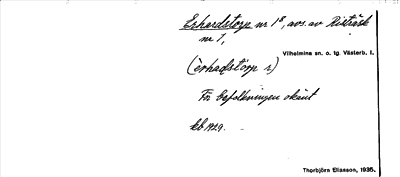 Erhardstorp nr 1⁸, avs. av Risträsk
nr 1,
Vilhelmina sn. o. tg. Västerb. l.
(èrhadstòrp )
För befolkningen okänt
kb 1929.
Thorbjörn Eliasson, 1935.